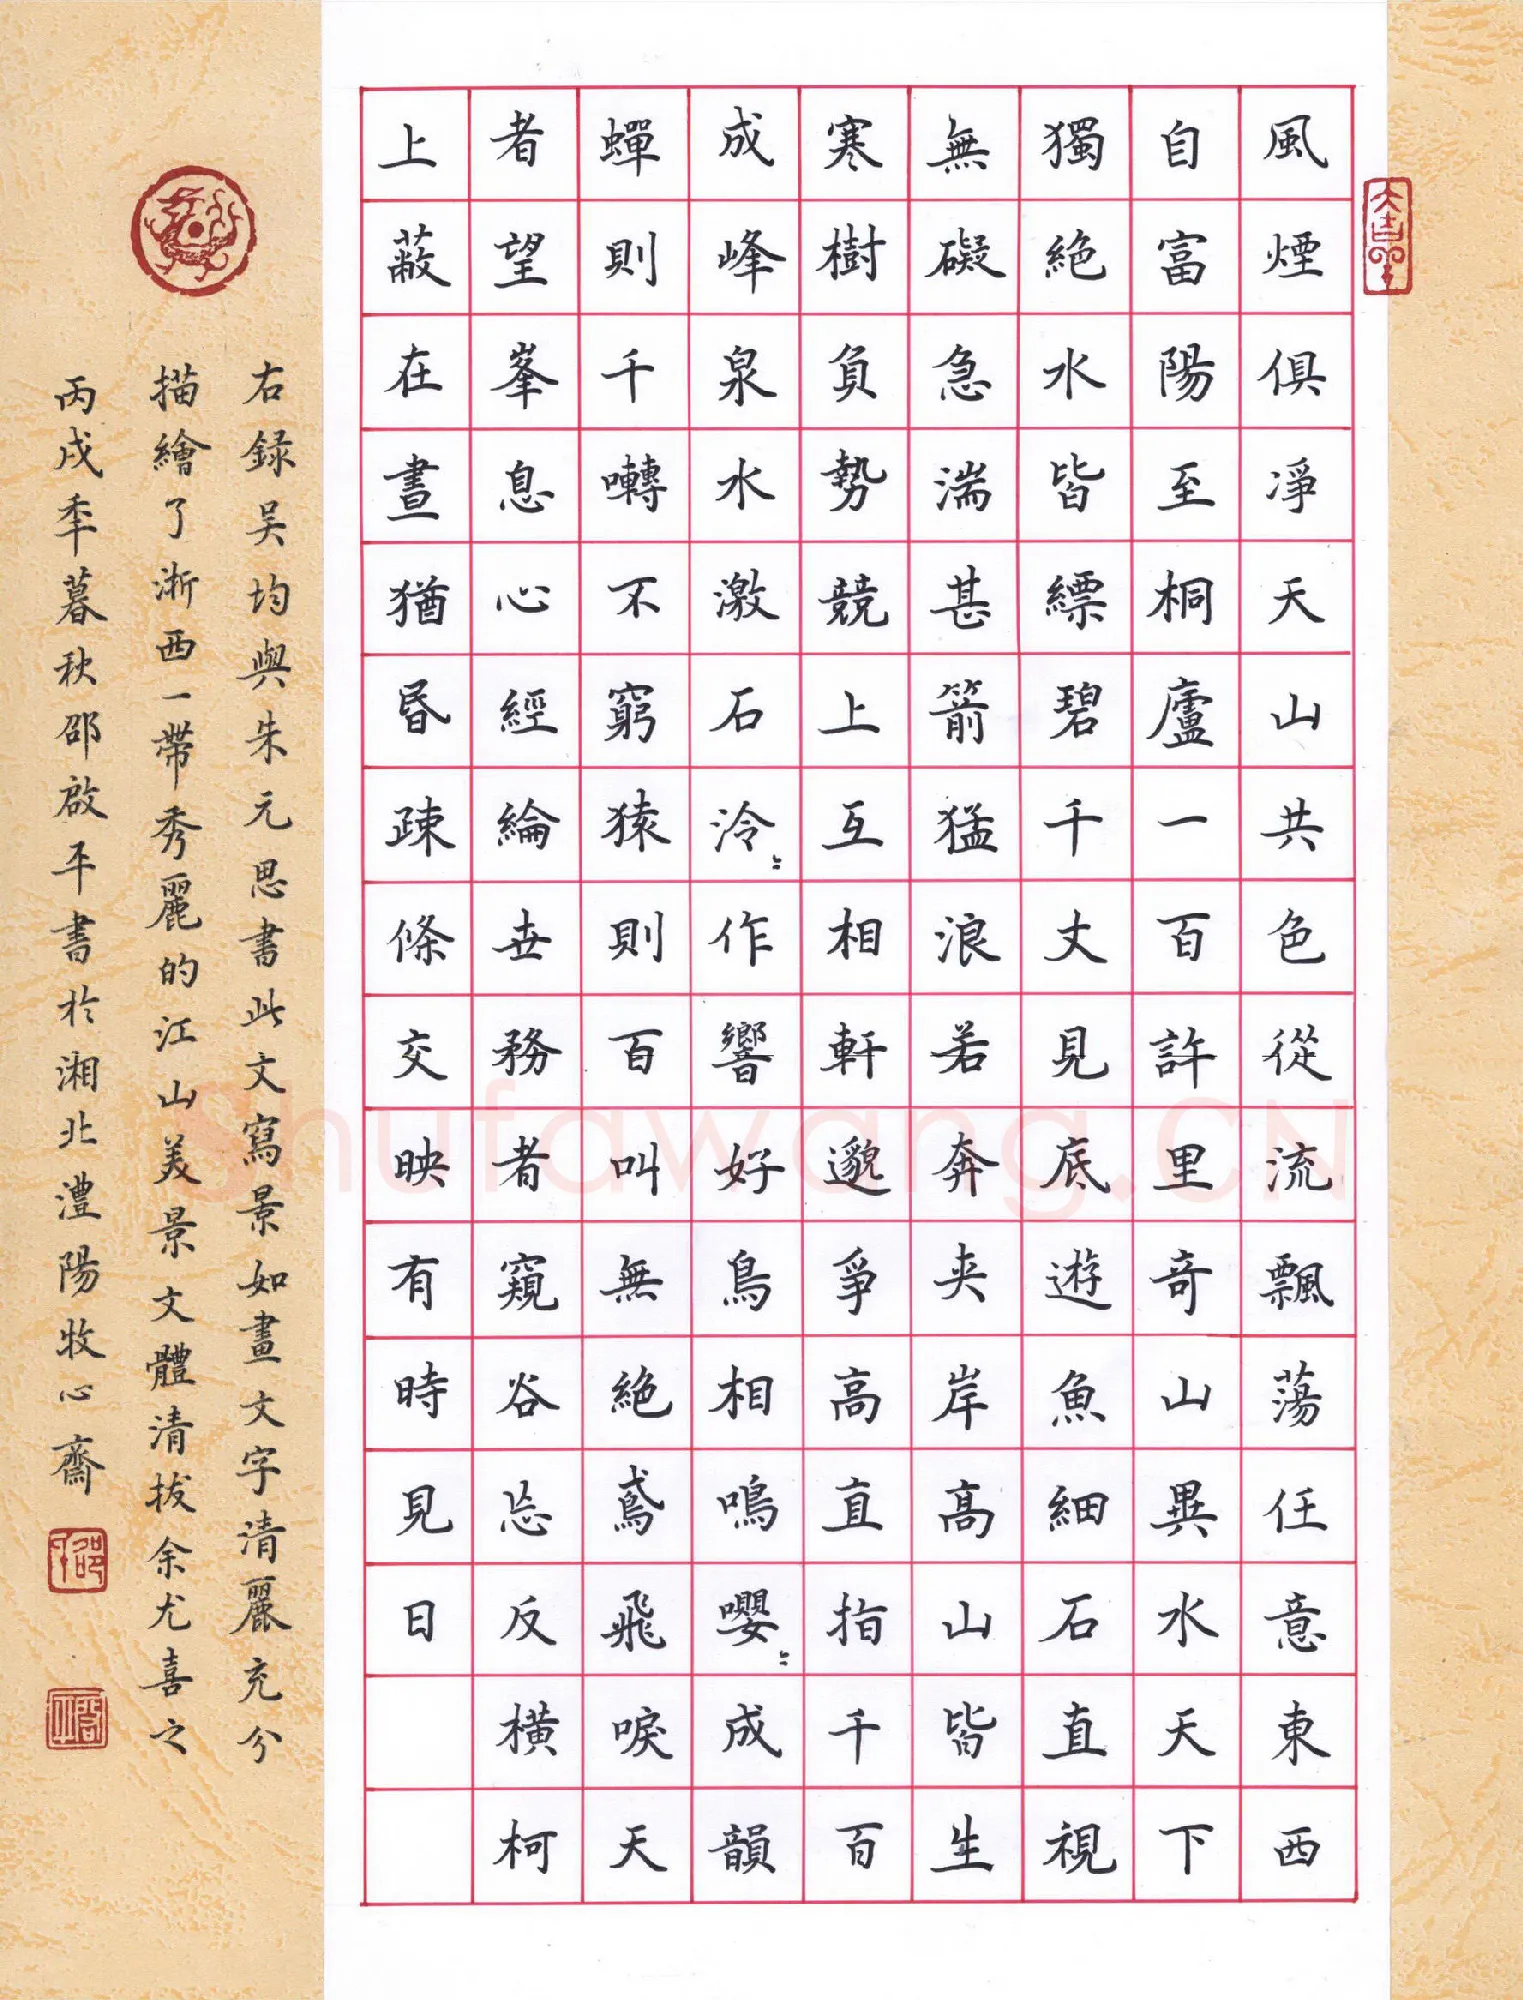 風煙俱凈天山共色從流飄蕩任意東西
自富陽至桐廬一百許里奇山異水天下
獨絕水皆縹碧千丈見底遊魚細石直視
無礙急湍甚箭猛浪若奔夾岸高山皆生
寒樹負勢競上互相軒邈爭高直指千百
成峰泉水激石泠〻作響好鳥相鳴嚶〻成韻
蟬則千囀不窮猿則百叫無絕鳶飛唳天
者望峯息心經綸世務者窺谷忘反橫柯
上蔽在晝猶昏疎條交映有時見日
右録吴均與朱元思書此文寫景如畫文字清麗充分
描繪了浙西一帶秀麗的江山美景文體清拔余尤喜之
丙戌秊暮秋邵啟平書於湘北澧陽牧心齋
Shufawang.CN